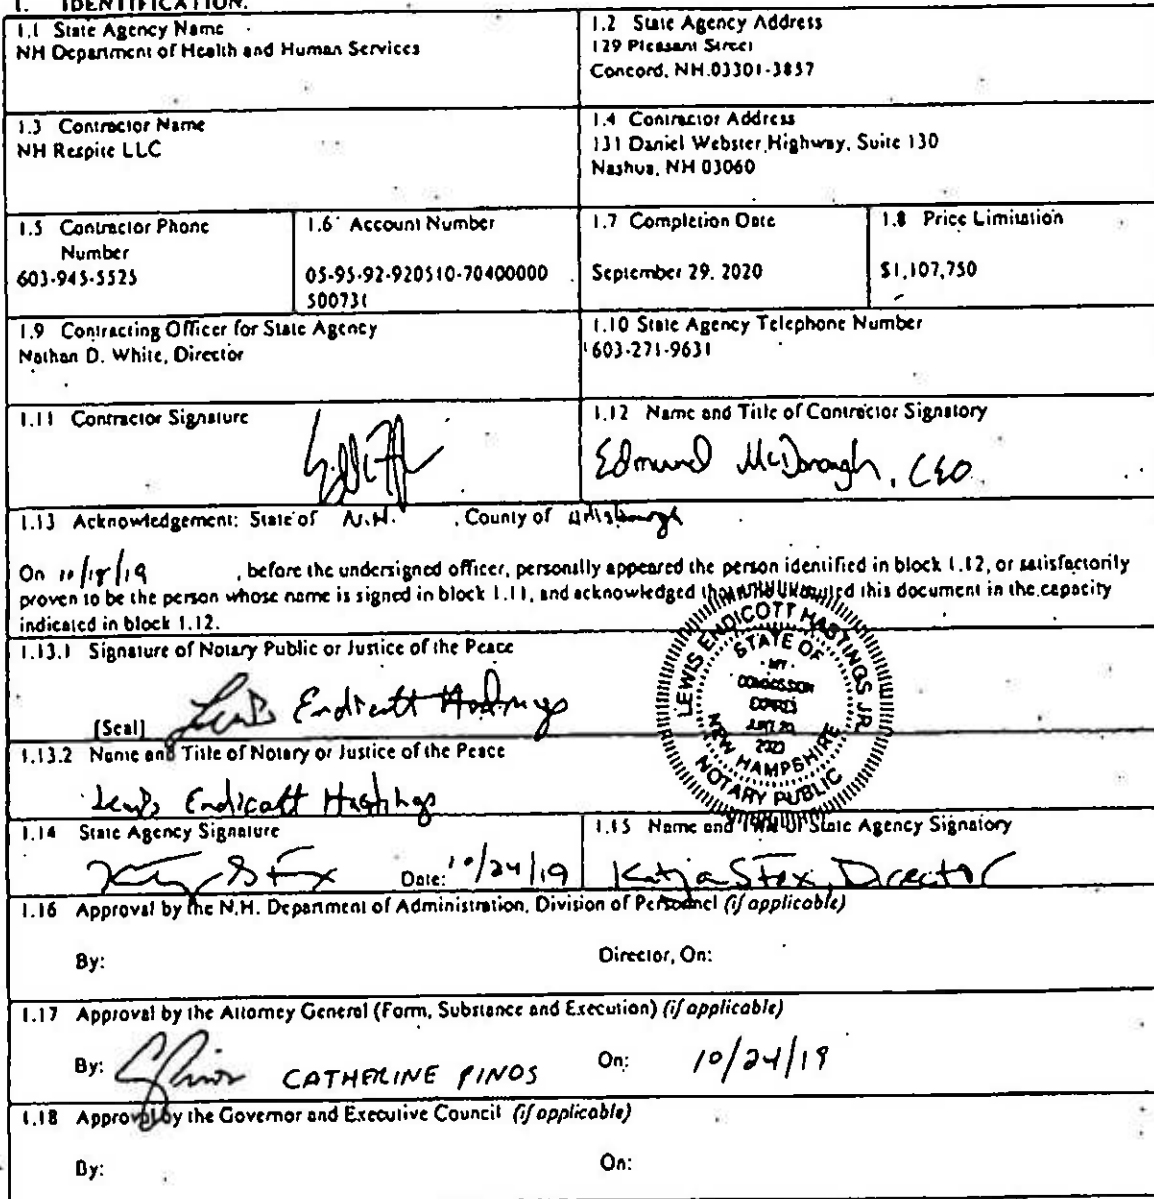 1. IDENTIFICATION.
1.1 State Agency Name
NH Department of Health and Human Services
1.2 State Agency Address
129 Pleasant Street
Concord, NH 03301-3857
1.3 Contractor Name
NH Respite LLC
1.4 Contractor Address
131 Daniel Webster Highway, Suite 130
Nashua, NH 03060
1.5 Contractor Phone
Number
603-945-5525
1.6 Account Number
05-95-92-920510-70400000
500731
1.7 Completion Date
September 29, 2020
1.8 Price Limitation
$1,107,750
1.9 Contracting Officer for State Agency
Nathan D. White, Director
1.10 State Agency Telephone Number
603-271-9631
1.11 Contractor Signature
1.12 Name and Title of Contractor Signatory
Edmund McDonagh, CEO
1.13 Acknowledgement: State of N.H. , County of
On 10/18/19 , before the undersigned officer, personally appeared the person identified in block 1.12, or satisfactorily
proven to be the person whose name is signed in block 1.11, and acknowledged this document in the capacity
indicated in block 1.12.
1.13.1 Signature of Notary Public or Justice of the Peace
[Seal] Lewis Endicott Hastings
LEWIS ENDICOTT HASTINGS JR.
STATE OF
MY
COMMISSION
EXPIRES
NEW HAMPSHIRE
NOTARY PUBLIC
1.13.2 Name and Title of Notary or Justice of the Peace
Lewis Endicott Hastings
1.14 State Agency Signature
Date: 10/24/19
1.15 Name and Title of State Agency Signatory
Katja S Fox, Director
1.16 Approval by the N.H. Department of Administration, Division of Personnel (if applicable)
By: Director, On:
1.17 Approval by the Attorney General (Form, Substance and Execution) (if applicable)
By: CATHERINE PINOS On: 10/24/19
1.18 Approval by the Governor and Executive Council (if applicable)
By: On: